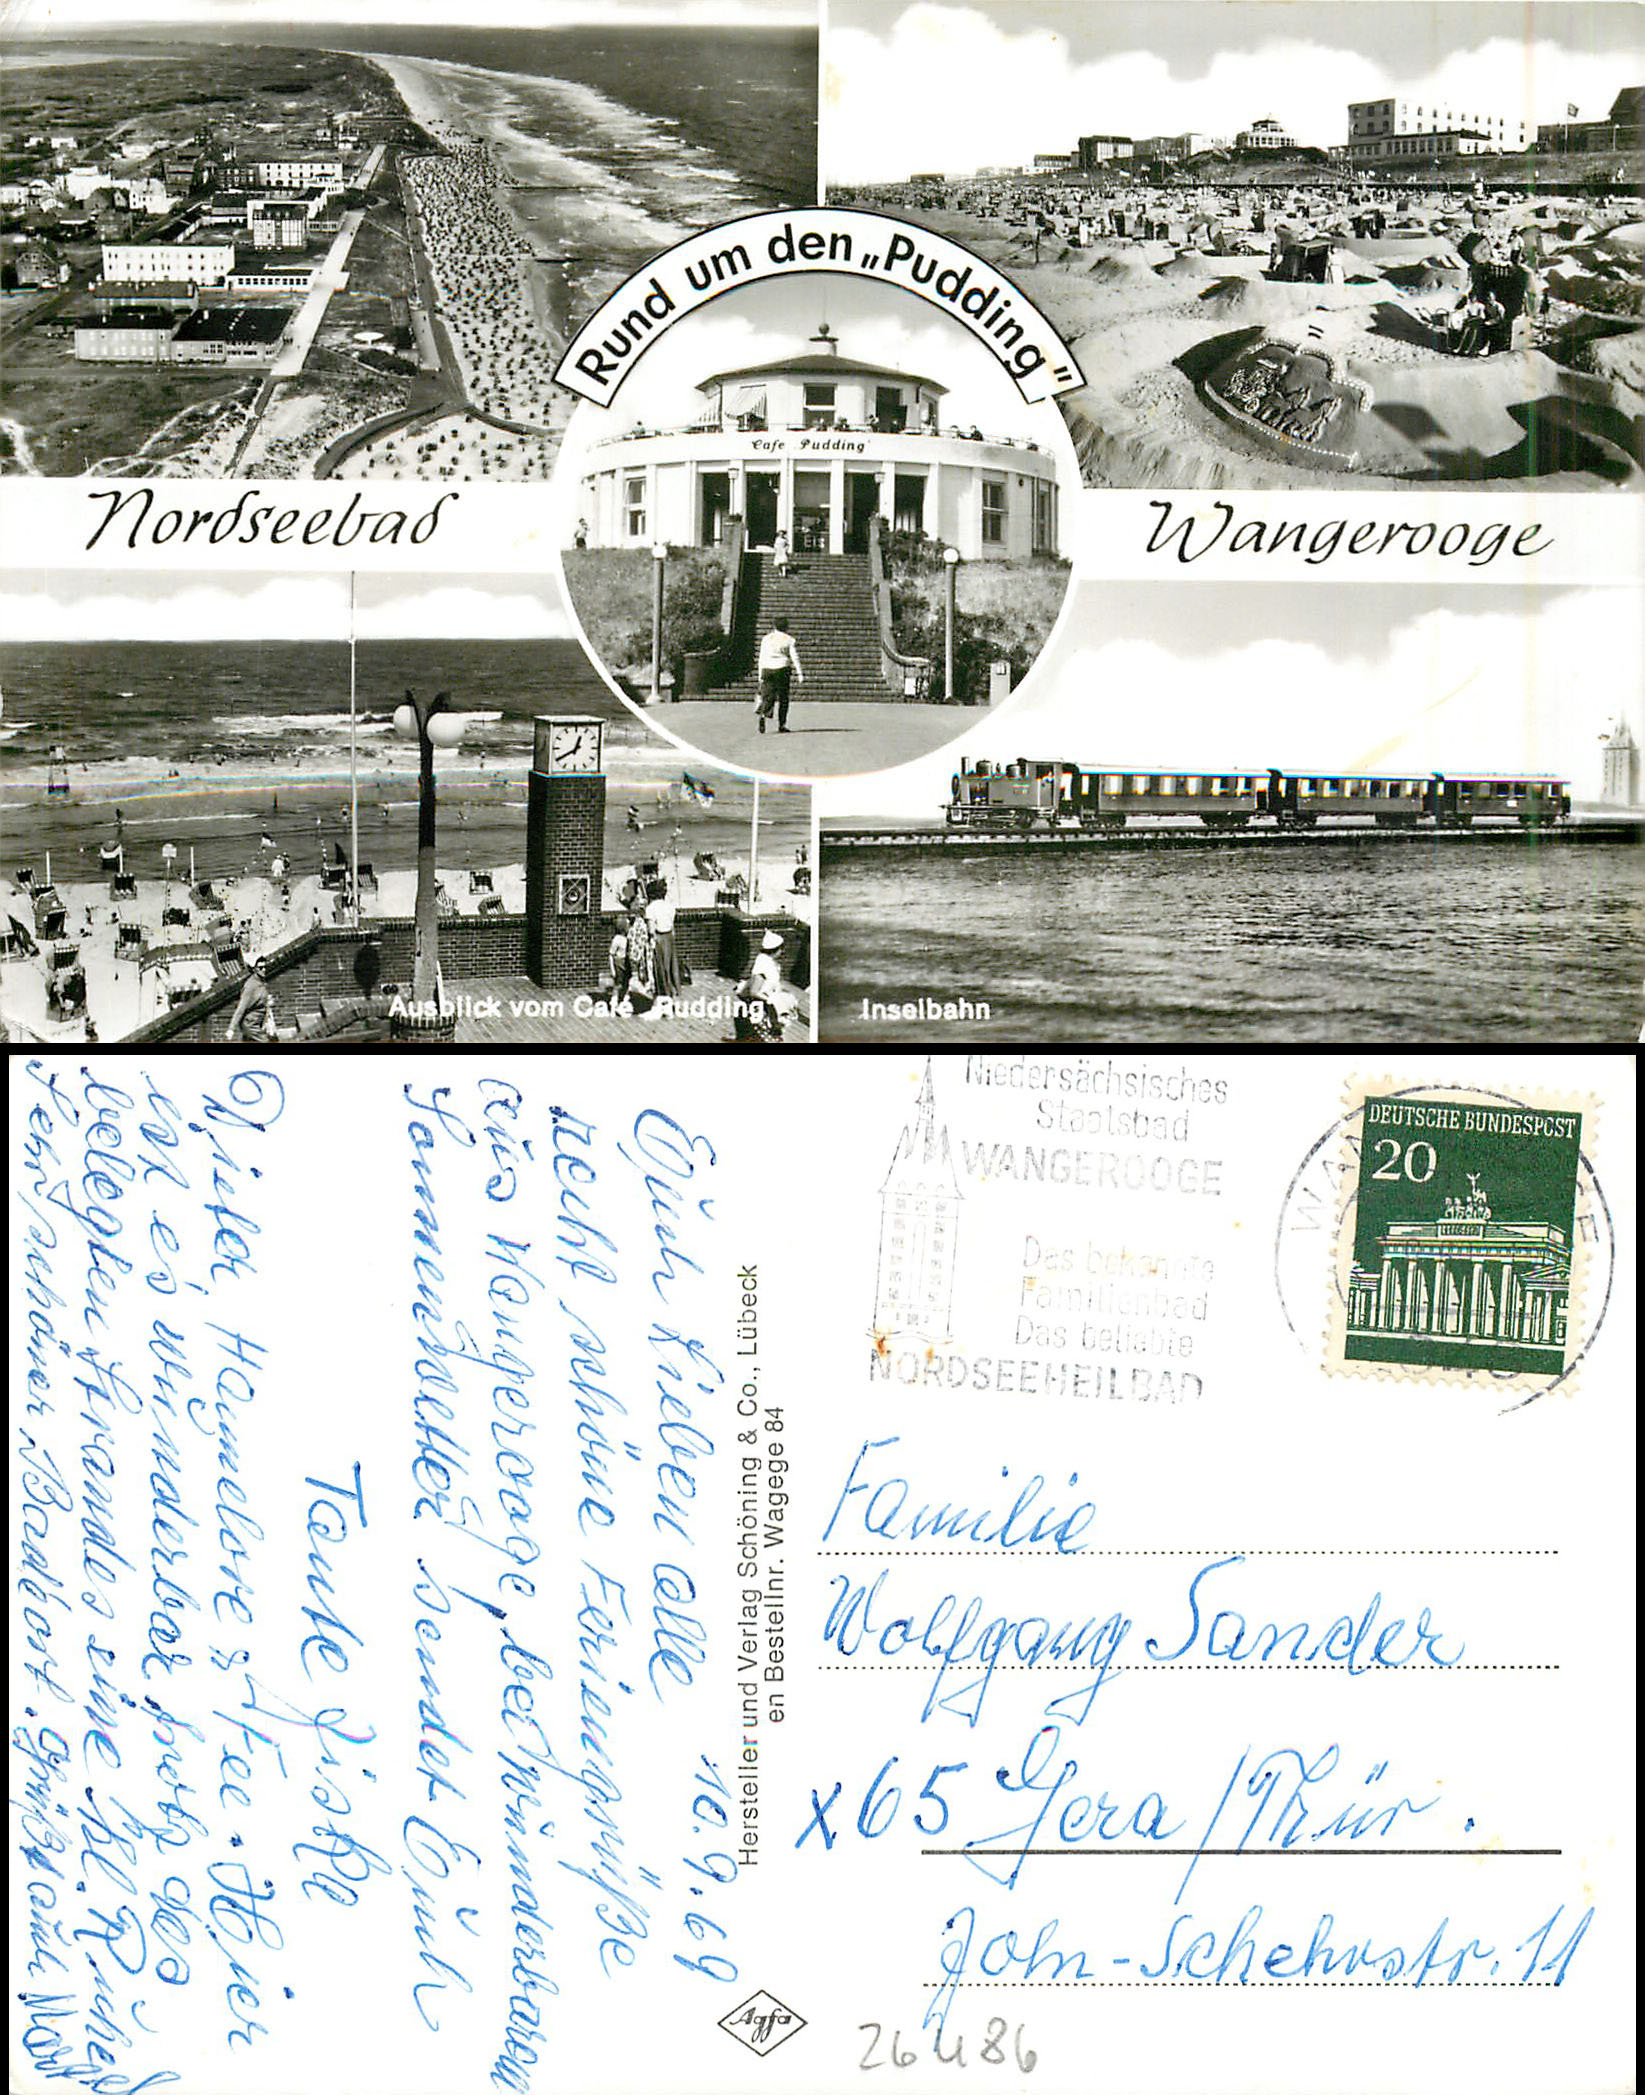 Rund um den „Pudding"
Cafe Pudding
Nordseebad
Wangerooge
Ausblick vom Café „Pudding"
Inselbahn
Niedersächsisches
Staatsbad
WANGEROOGE
Das bekannte
Familienbad
Das beliebte
NORDSEEHEILBAD
DEUTSCHE BUNDESPOST
20
WANGEROOGE
10.9.69
Euch Lieben alle
recht schöne Feriengrüße
aus Wangerooge, bei wunderbarem
Sommerwetter sendet Euch
Tante
Hannelore
ist es wunderbar trotz des
belegten Strandes eine kl.
Sehr schöner Badeort.
Hersteller und Verlag Schöning & Co., Lübeck
en Bestellnr. Wagege 84
Agfa
Familie
Wolfgang Sander
x65 Gera/Thür.
John-Schehrstr. 11
26486